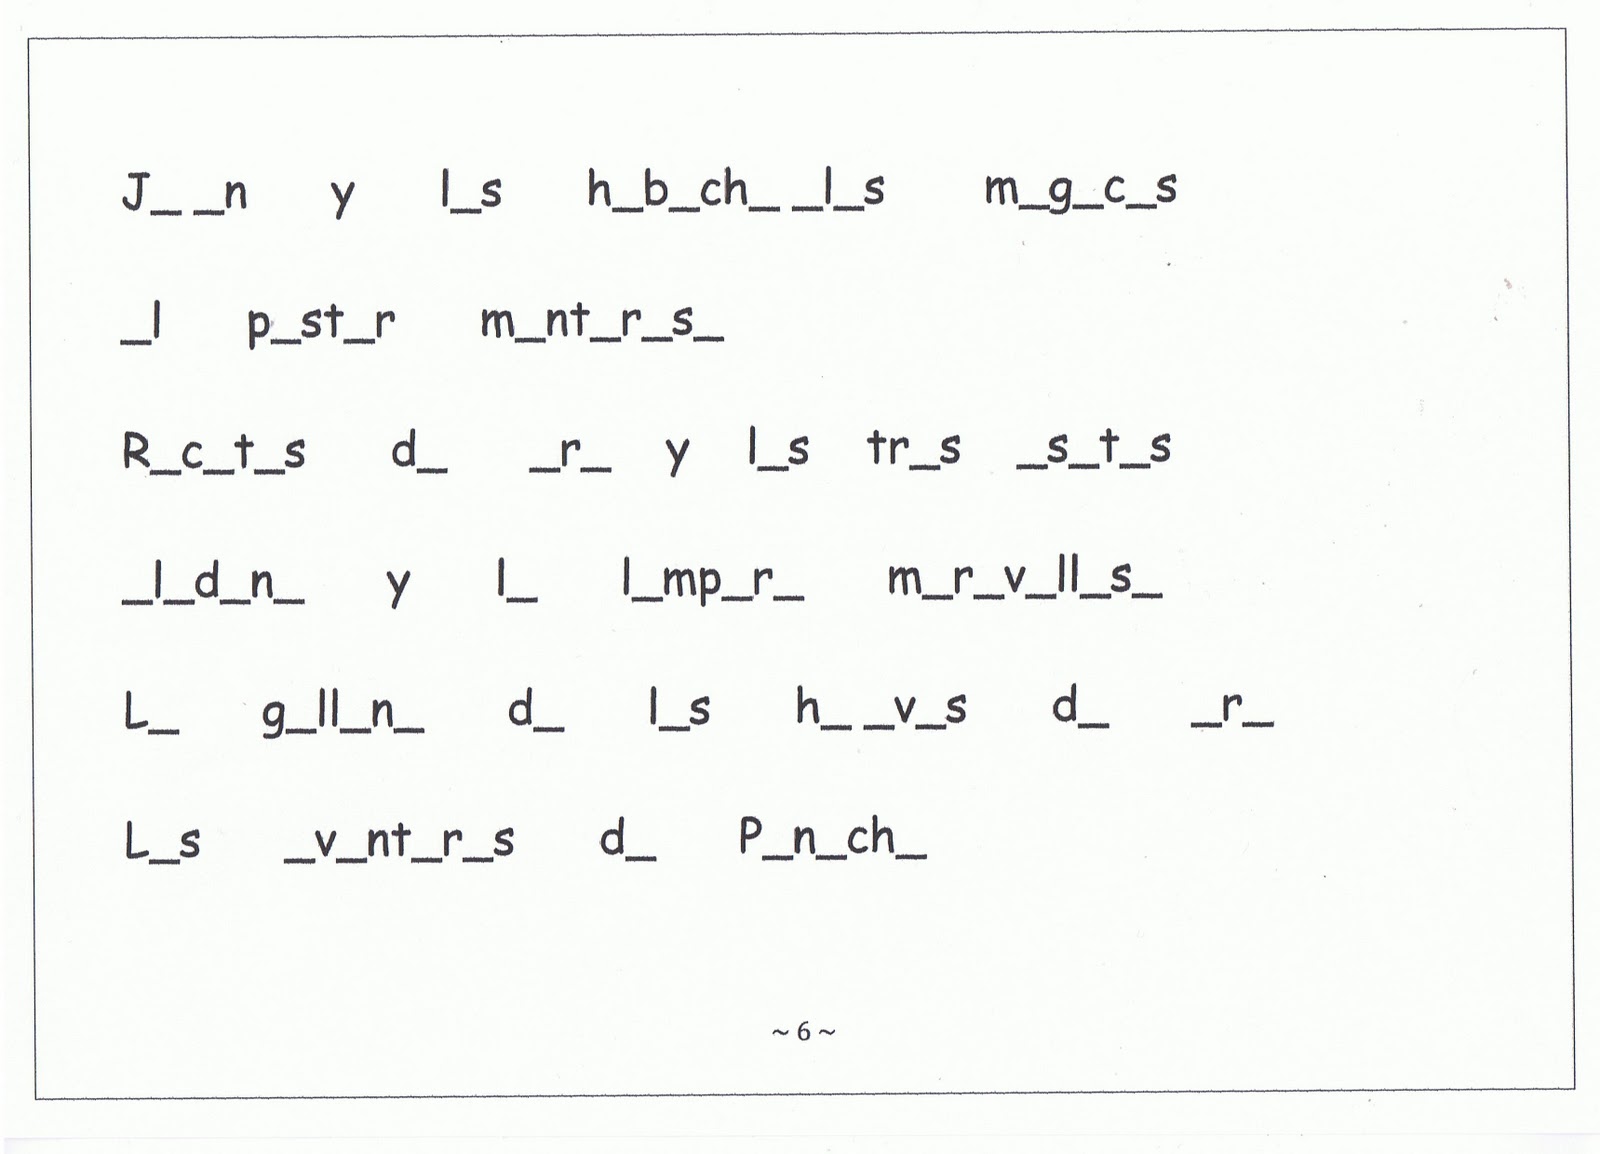 J_ _n y l_s h_b_ch_ _l_s m_g_c_s
_l p_st_r m_nt_r_s_
R_c_t_s d_ _r_ y l_s tr_s _s_t_s
_l_d_n_ y l_ l_mp_r_ m_r_v_ll_s_
L_ g_ll_n_ d_ l_s h_ _v_s d_ _r_
L_s _v_nt_r_s d_ P_n_ch_
~ 6 ~